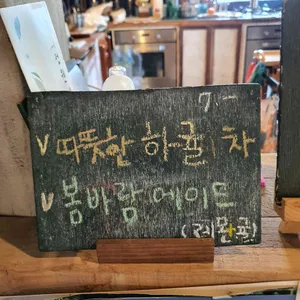 7.-
V 따뜻한 하귤차
V 봄바람에이드
(레몬+귤)